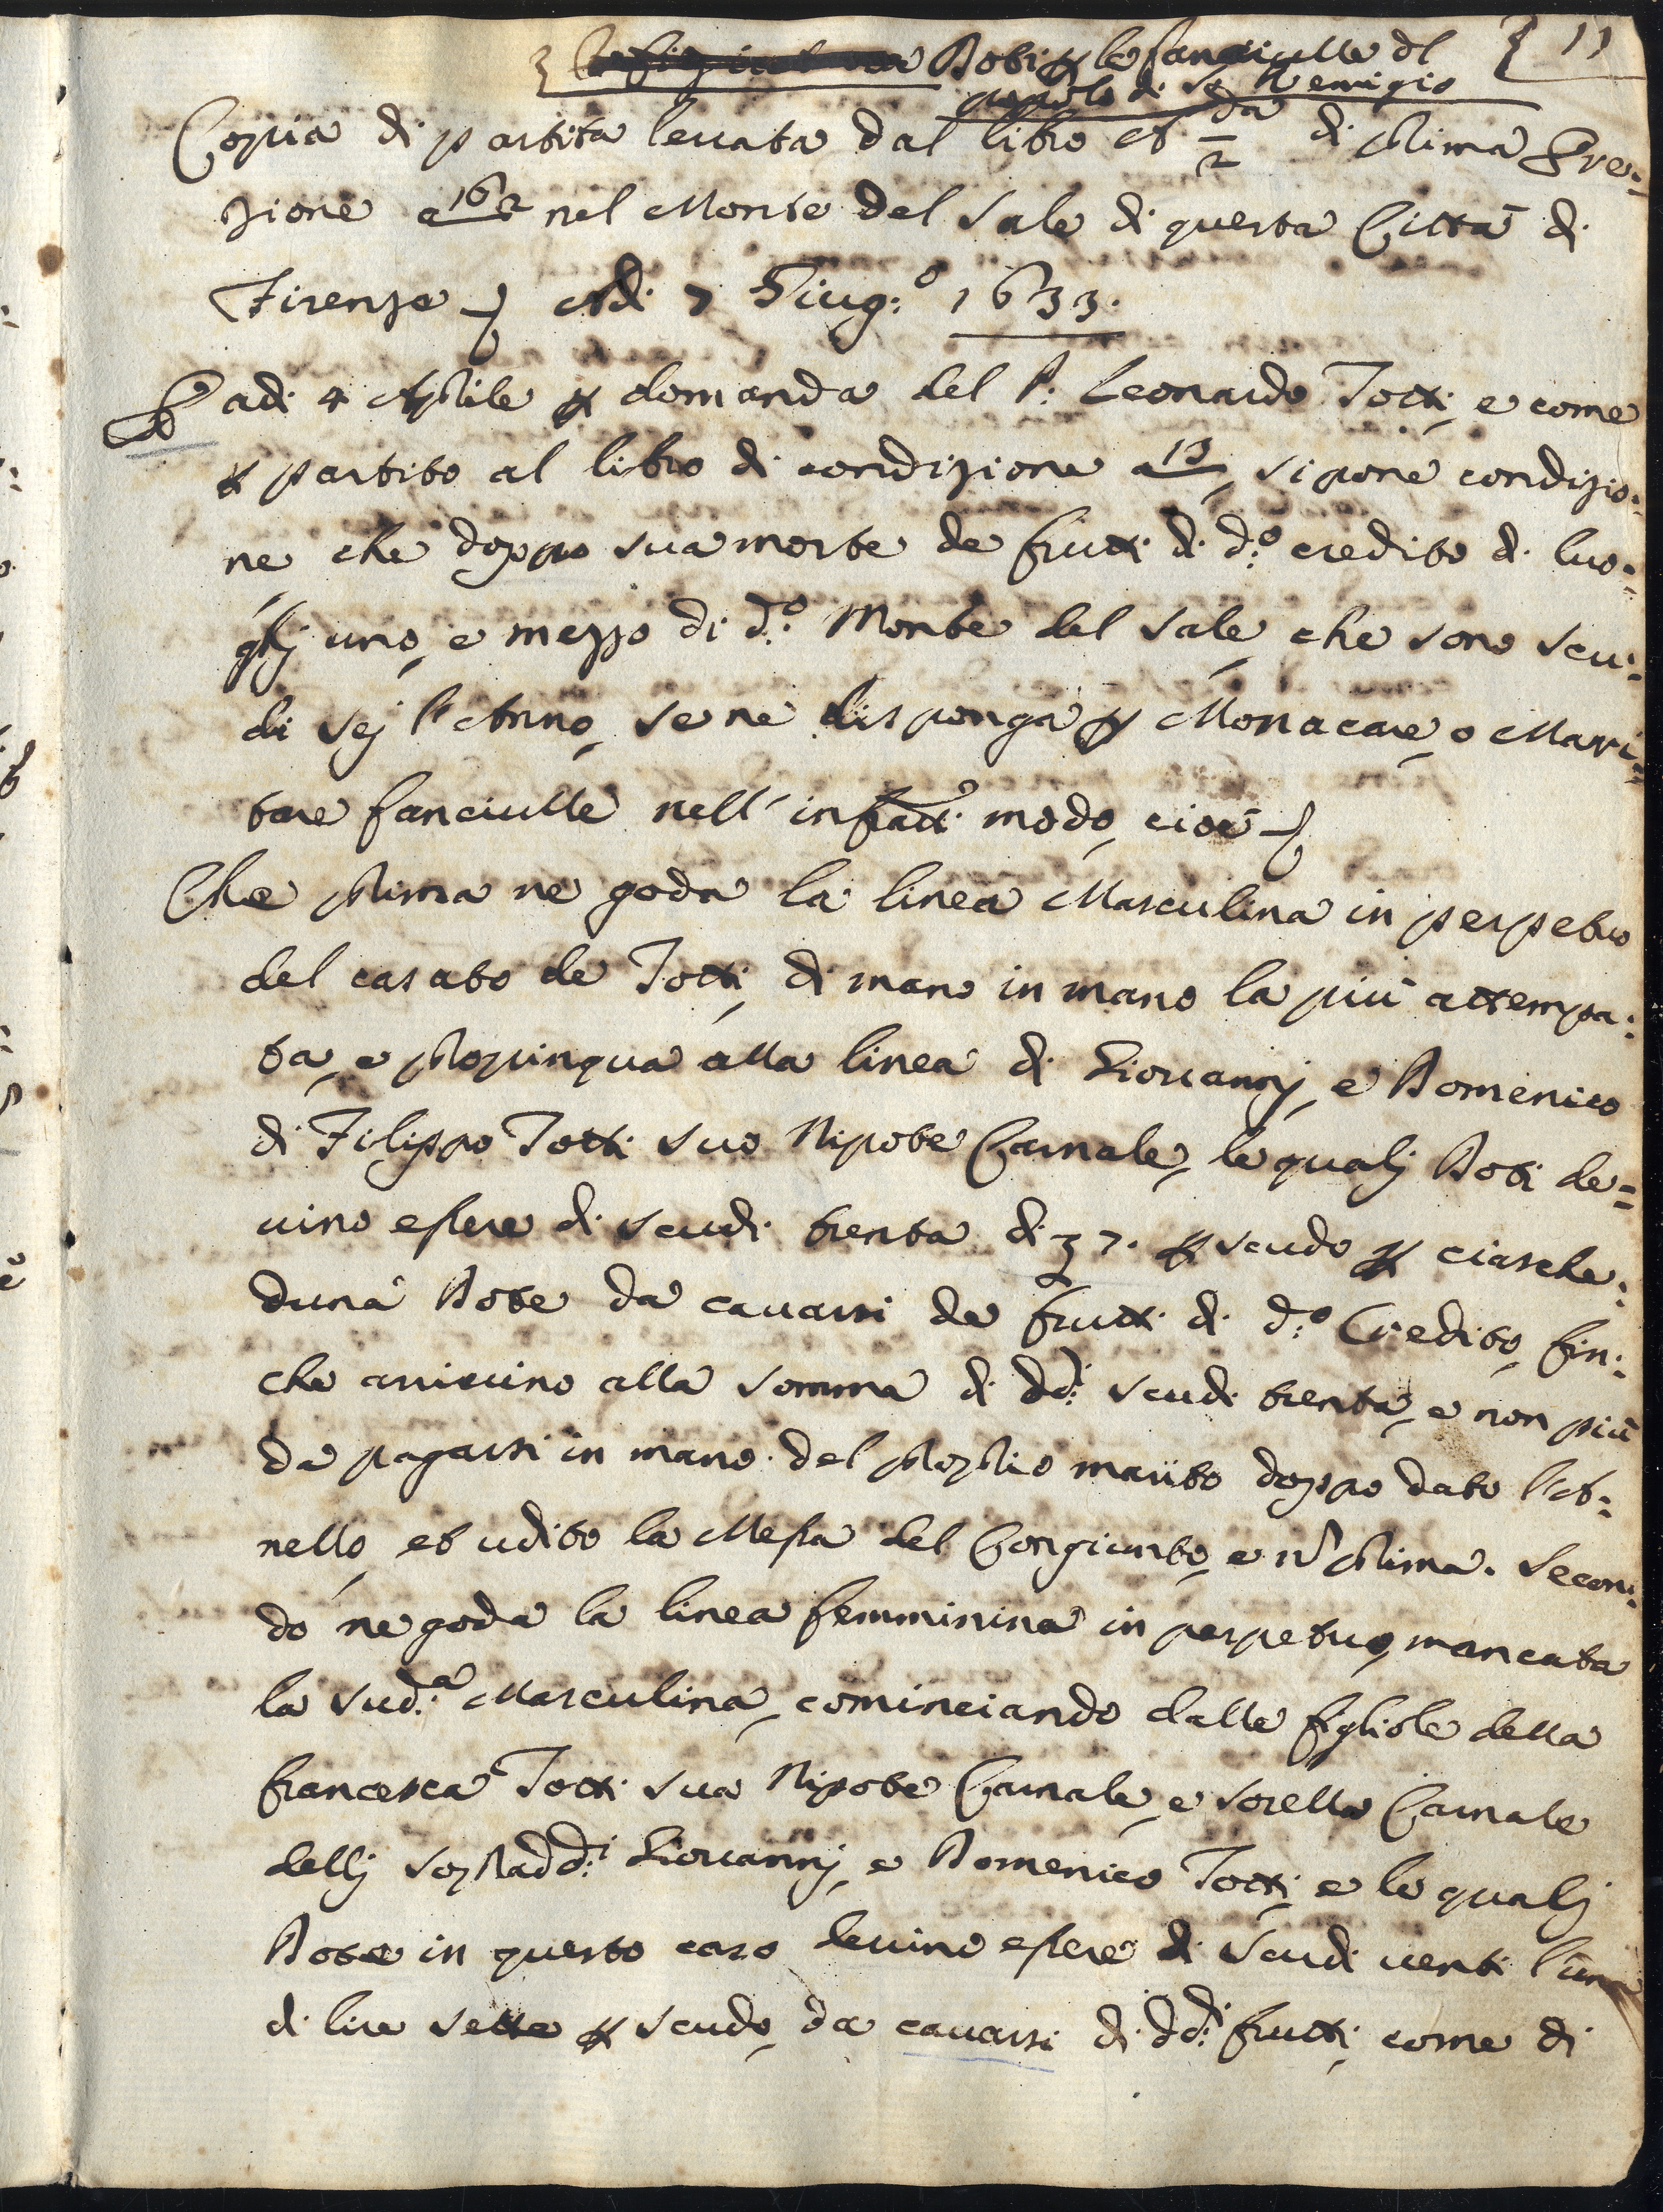 Doti p le fanciulle dl { 11
popolo di S. Remigio
Copia di partita leuata dal libro A 2 da di prima Ere=
zione a 162 nel Monte del Sale di questa Città di
Firenze Adi 7 Giug.o 1633.
E adi 4 Aprile p domanda del P. Leonardo Totti, e come
p partito al libro di condizione a 13, si pone condizio=
ne che doppo sua morte de frutti di d.o credito di luo=
ghj uno, e mezzo di d.o Monte del Sale, che sono scu=
di sej l'Anno, se ne disponga p Monacare, o Mari=
tare fanciulle nell' infratto modo, cioè
Che prima ne goda la linea Masculina in perpetuo
del casato de Totti, di mano in mano la più attempa=
ta, e propinqua alla linea di Giouannj, e Domenico
di Filippo Totti suo Nipote Carnale, le qualj Doti de=
uino essere di scudi trenta di 7. p scudo p ciasche=
duna Dote da cauarsi de frutti di d.o Credito, fin=
che arriuino alla somma di dd.i scudi trenta, e non più
da pagarsi in mano del proprio marito doppo dato l'A=
nello, et udito la Messa del Congiunto, e n prima. Secon=
do ne goda la linea femminina in perpetuo, mancata
la sud.a Masculina, cominciando dalle figliole della
francesca Totti sua Nipote Carnale, e sorella Carnale
dellj sopradd.i Giouannj, e Domenico Totti, e le qualj
Dote in questo caso deuino essere di scudi uenti l'una
di lire sette p scudo, da cauarsi di dd.i frutti, come di